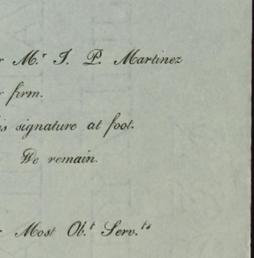 Mr J. P. Martinez
firm.
signature at foot.
We remain.
Most Obt Servts